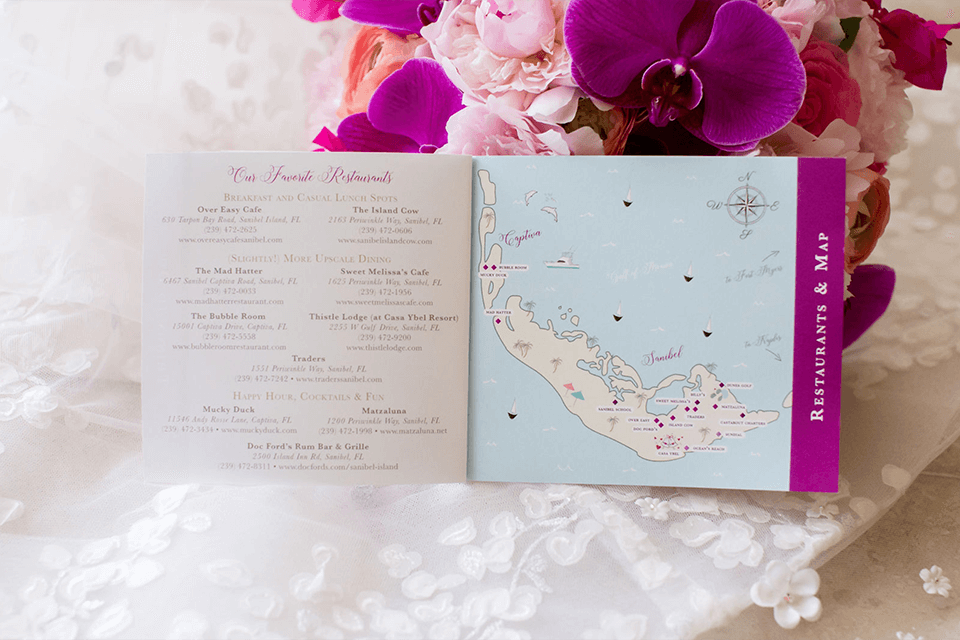 Our Favorite Restaurants
Breakfast and Casual Lunch Spots
Over Easy Cafe
630 Tarpon Bay Road, Sanibel Island, FL
(239) 472-2625
www.overeasycafesanibel.com
The Island Cow
2163 Periwinkle Way, Sanibel, FL
(239) 472-0606
www.sanibelislandcow.com
(Slightly!) More Upscale Dining
The Mad Hatter
6467 Sanibel Captiva Road, Sanibel, FL
(239) 472-0033
www.madhatterrestaurant.com
Sweet Melissa's Cafe
1625 Periwinkle Way, Sanibel, FL
(239) 472-1956
www.sweetmelissascafe.com
The Bubble Room
15001 Captiva Drive, Captiva, FL
(239) 472-5558
www.bubbleroomrestaurant.com
Thistle Lodge (at Casa Ybel Resort)
2255 W Gulf Drive, Sanibel, FL
(239) 472-9200
www.thistlelodge.com
Traders
1551 Periwinkle Way, Sanibel, FL
(239) 472-7242 • www.traderssanibel.com
Happy Hour, Cocktails & Fun
Mucky Duck
11546 Andy Rosse Lane, Captiva, FL
(239) 472-3434 • www.muckyduck.com
Matzaluna
1200 Periwinkle Way, Sanibel, FL
(239) 472-1998 • www.matzaluna.net
Doc Ford's Rum Bar & Grille
2500 Island Inn Rd, Sanibel, FL
(239) 472-8311 • www.docfords.com/sanibel-island
N
W E
S
Captiva
Gulf of Mexico
to Fort Myers
Bubble Room
Mucky Duck
Mad Hatter
to Naples
Sanibel
Dunes Golf
Billy's
Sweet Melissa's
Sanibel School
Matzaluna
Traders
Over Easy
Island Cow
Castabout Charters
Doc Ford's
Sundial
Ocean's Reach
Casa Ybel
Restaurants & Map